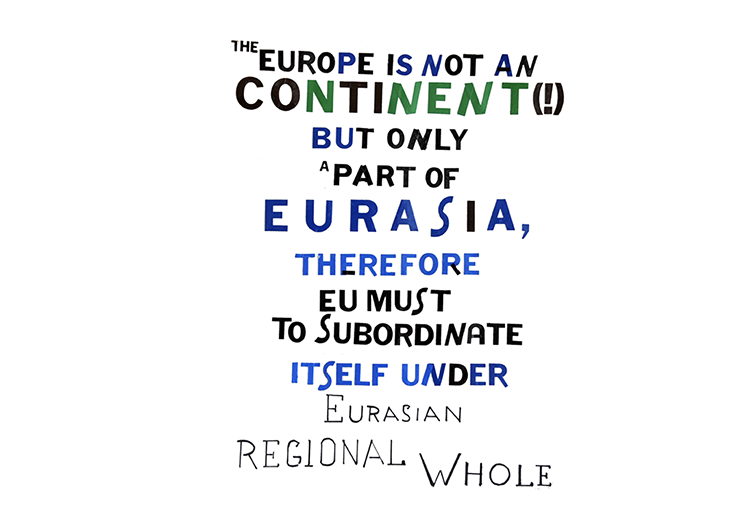 THE EUROPE IS NOT AN
CONTINENT(!)
BUT ONLY
A PART OF
EURASIA,
THEREFORE
EU MUST
TO SUBORDINATE
ITSELF UNDER
EURASIAN
REGIONAL WHOLE